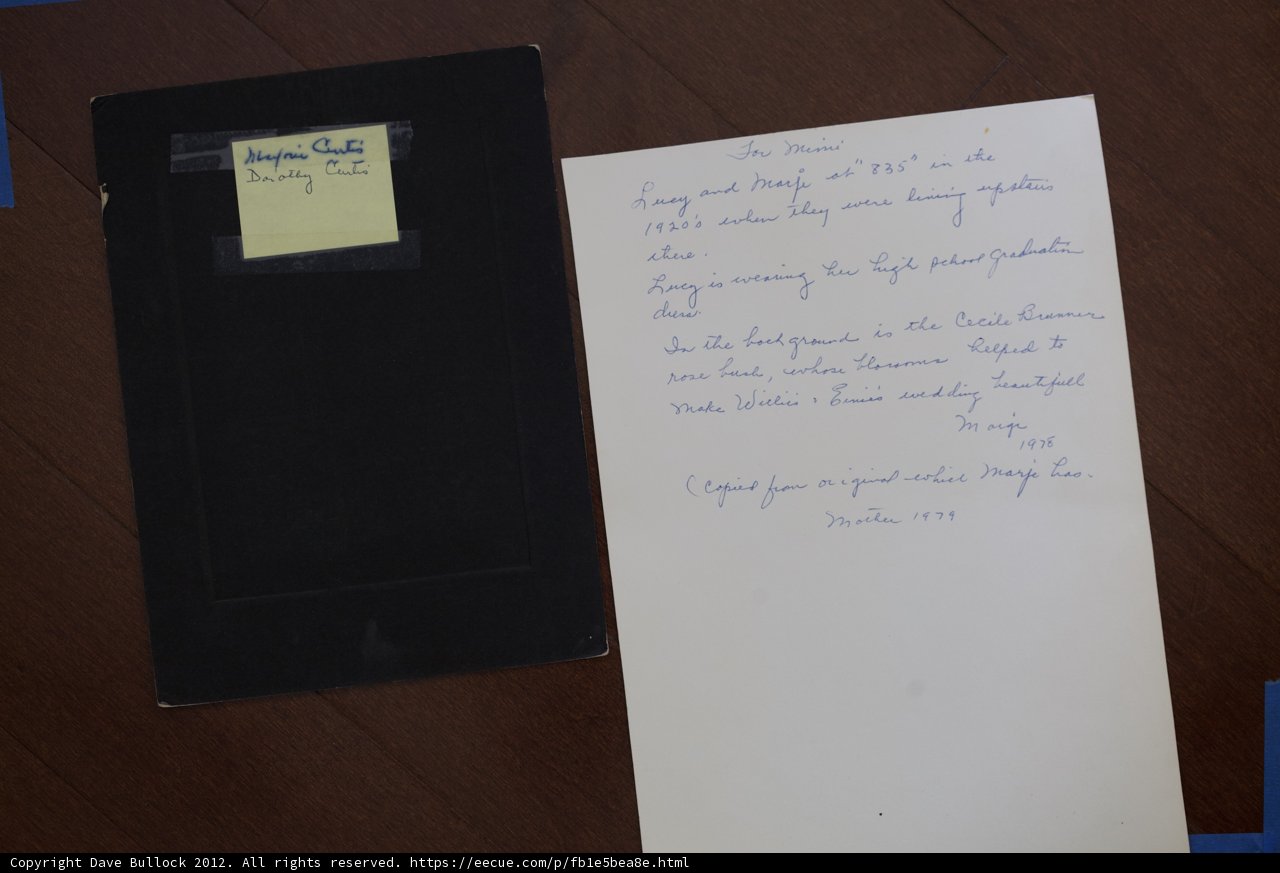 Marjorie Curtis
Dorothy Curtis
For Mimi
Lucy and Marje at "835" in the
1920's when they were living upstairs
there.
Lucy is wearing her high school graduation
dress.
In the background is the Cecile Brunner
rose bush, whose blossoms helped to
make Willis & Ernie's wedding beautiful
Marje
1978
(Copied from original which Marje has.
Mother 1979
Copyright Dave Bullock 2012. All rights reserved. https://eecue.com/p/fb1e5bea8e.html